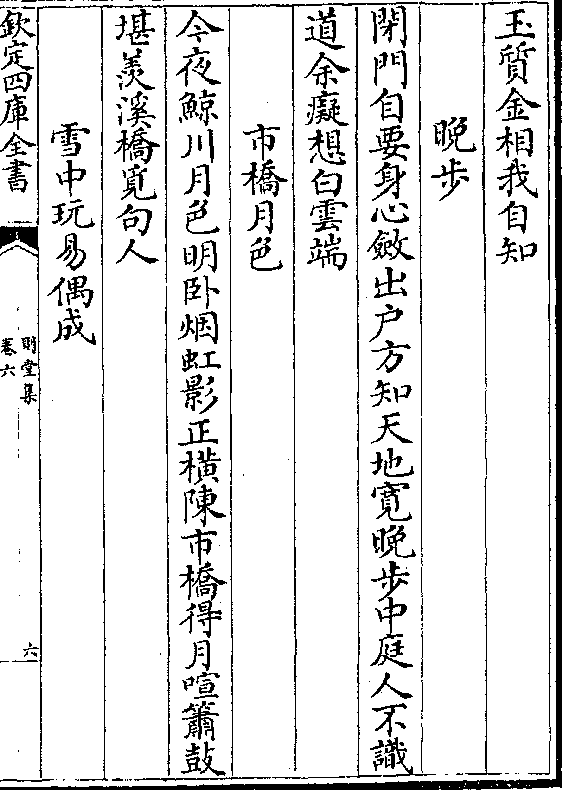 玉質金相我自知
晚步
閉門自要身心斂出户方知天地寛晚步中庭人不識
道余癡想白雲端
市橋月色
今夜鯨川月色明卧烟虹影正橫陳市橋得月喧簫鼓
堪羨溪橋覓句人
雪中玩易偶成
欽定四庫全書
則堂集
卷六
六